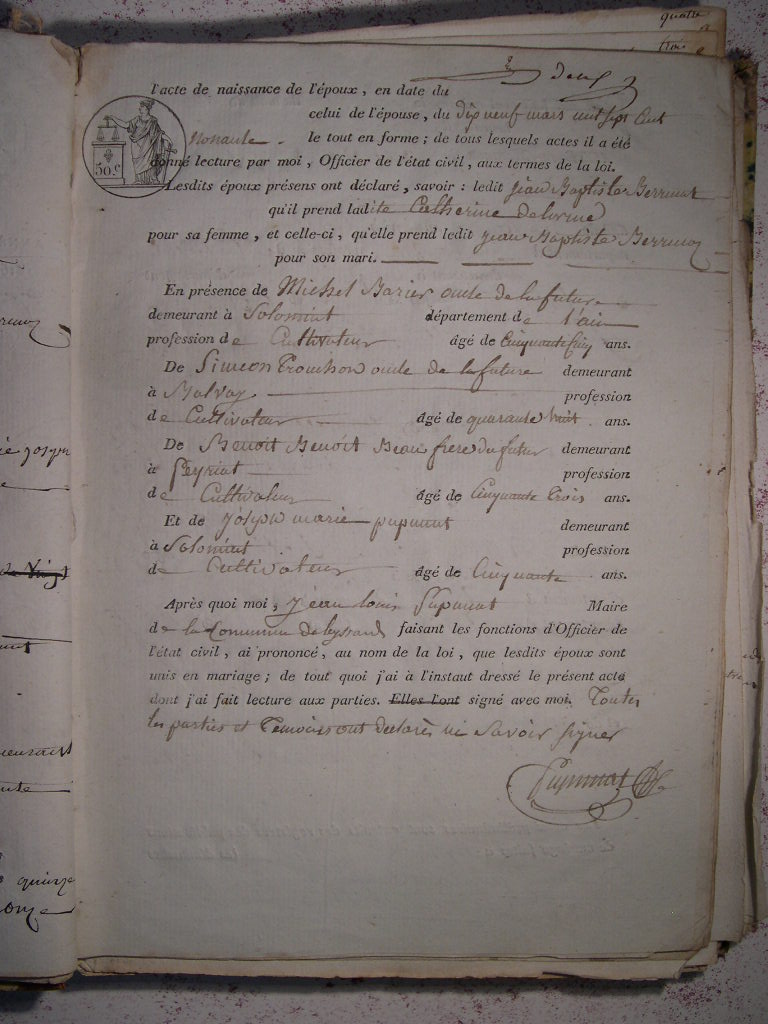 quatre
trois
deux
l'acte de naissance de l'époux, en date du
celui de l'épouse, du dix neuf mars mil sept Cent
Nonante. le tout en forme ; de tous lesquels actes il a été
50.c
donné lecture par moi, Officier de l'état civil, aux termes de la loi.
Lesdits époux présens ont déclaré, savoir : ledit jean Baptiste
qu'il prend ladite Catherine
pour sa femme, et celle-ci, qu'elle prend ledit jean Baptiste
pour son mari.
En présence de Michel Barier oncle de la future
demeurant à Solomiat département de l'ain
profession de Cultivateur âgé de Cinquante Cinq ans.
De Simeon oncle de la future demeurant
à profession
de Cultivateur âgé de quarante huit ans.
De Benoit Benoit Beau frere du futur demeurant
à Peyriat profession
de Cultivateur âgé de Cinquante trois ans.
Et de joseph marie pupunat demeurant
à Solomiat profession
de Cultivateur âgé de Cinquante ans.
Après quoi moi, jean louis Pupunat Maire
de la Commune de leyssard faisant les fonctions d'Officier de
l'état civil, ai prononcé, au nom de la loi, que lesdits époux sont
unis en mariage ; de tout quoi j'ai à l'instant dressé le présent acte
dont j'ai fait lecture aux parties. Elles l'ont signé avec moi. Toutes
les parties et Temoins ont declarés ne Savoir signer
Pupunat